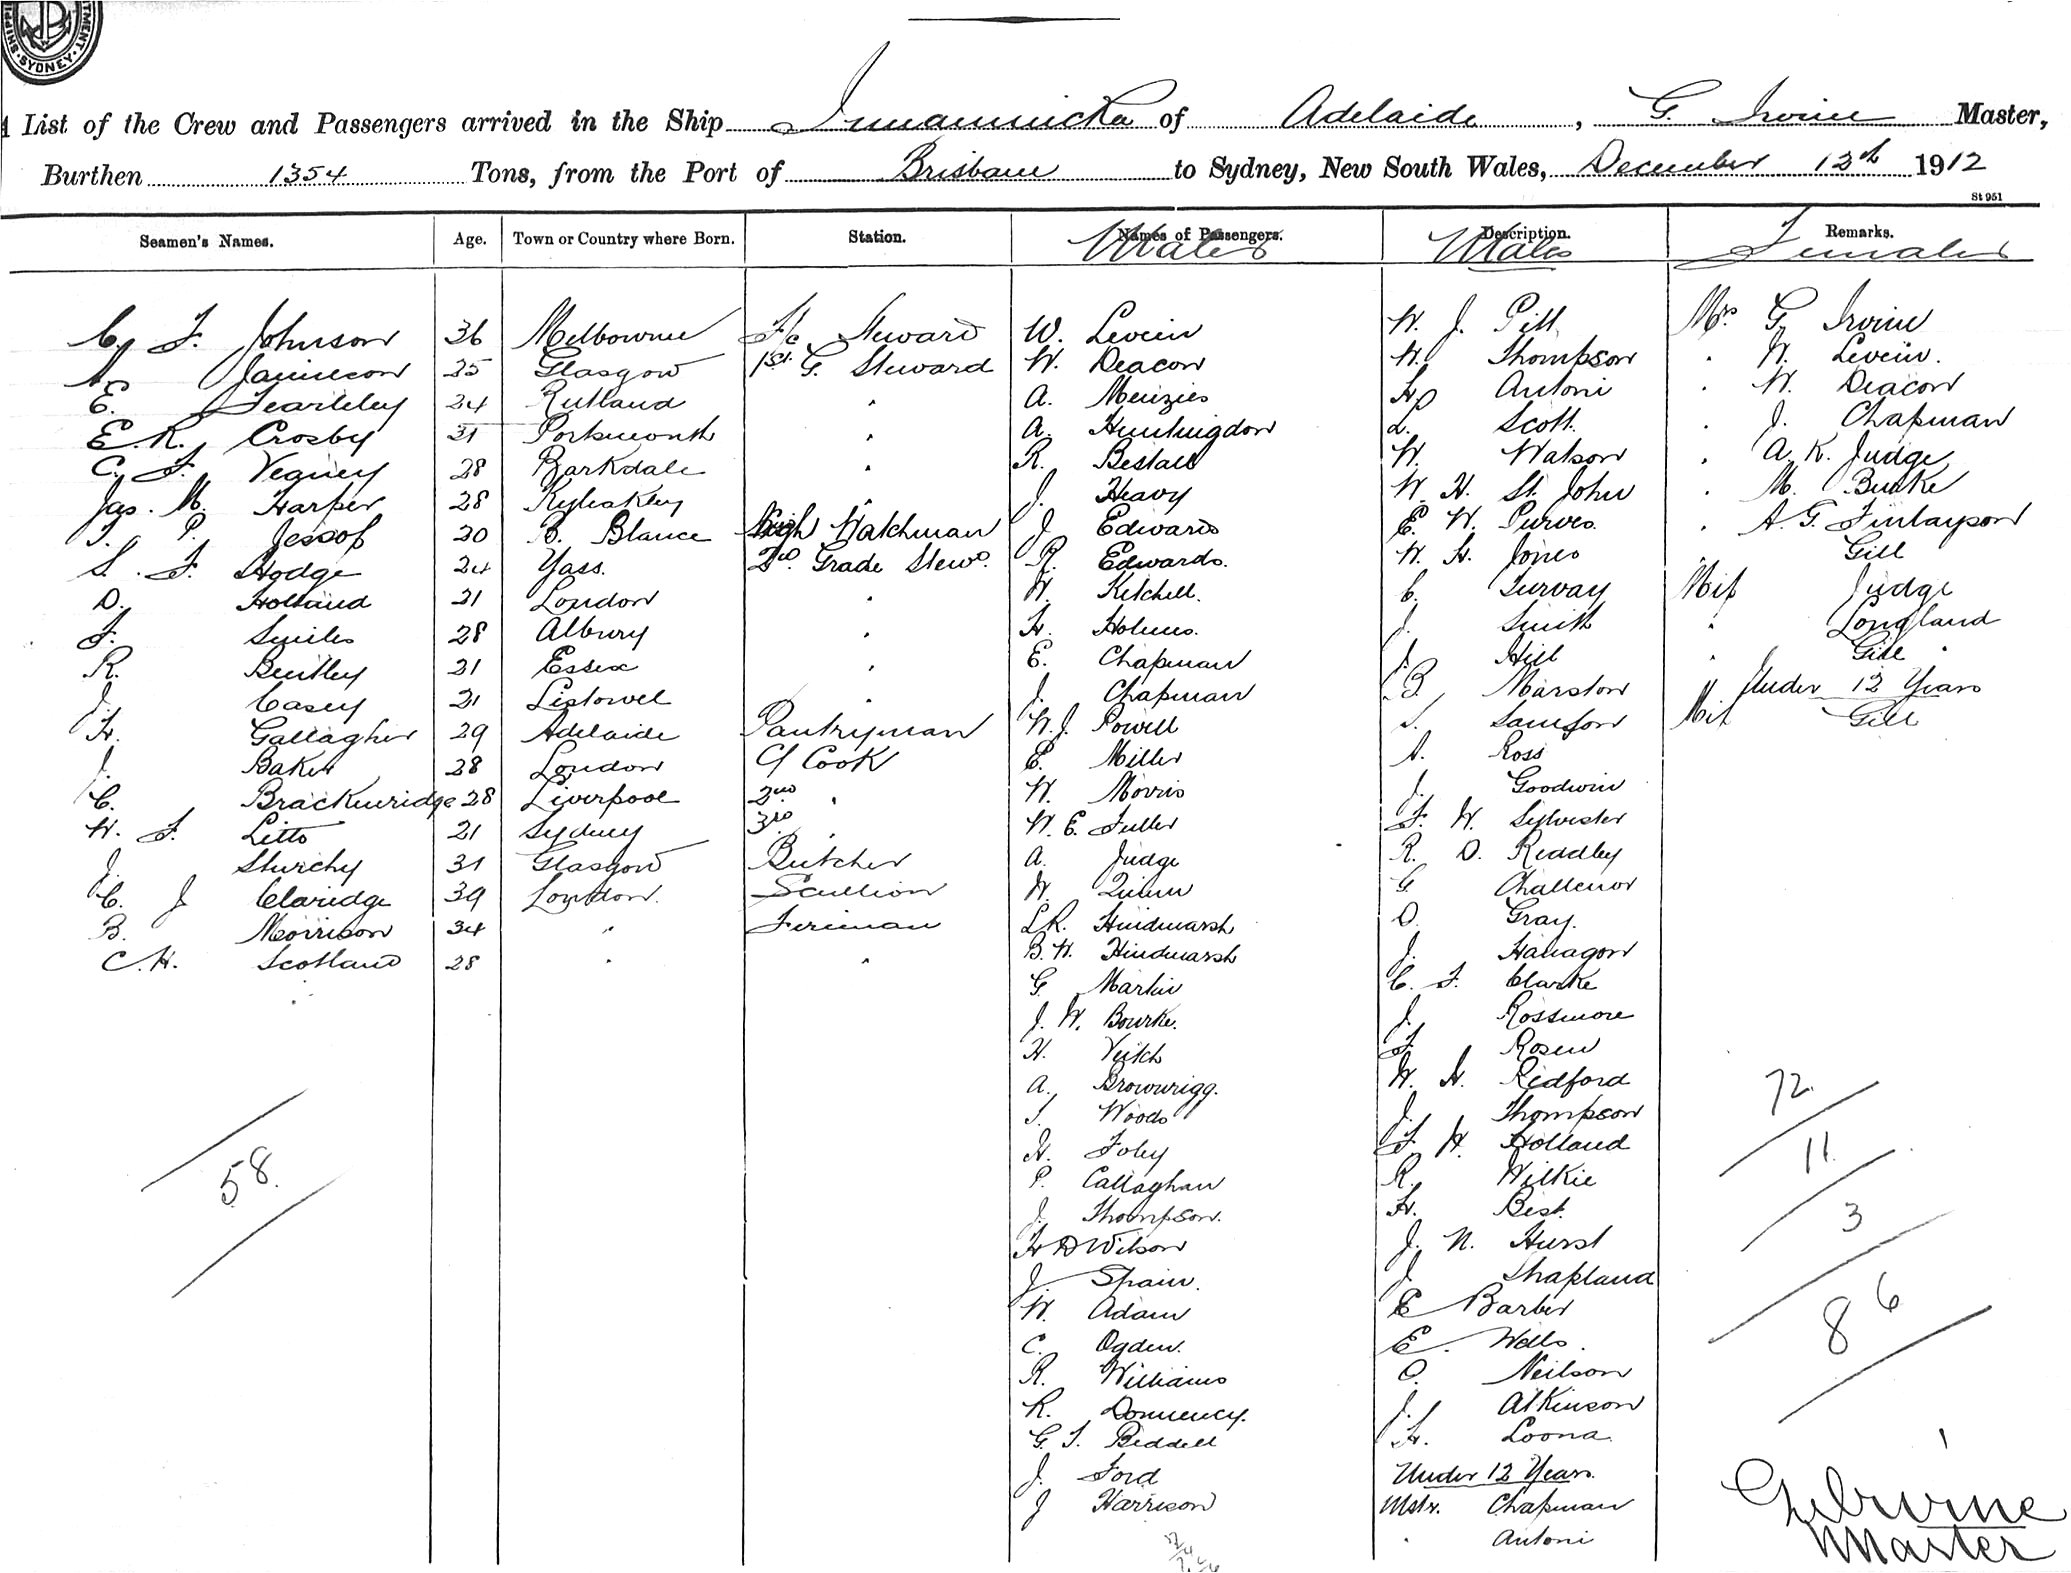 SYDNEY
List of the Crew and Passengers arrived in the Ship Innamincka of Adelaide, G. Irvine Master,
Burthen 1354 Tons, from the Port of Brisbane to Sydney, New South Wales, December 12th 1912
St 951
Seamen's Names. Age. Town or Country where Born. Station. Names of Passengers. Description. Remarks.
Males Males Females
C. F. Johnson 36 Melbourne F/c Steward W. Levein W. J. Pitt Mrs G. Irvine
A. Jamieson 25 Glasgow 1st G. Steward W. Deacon W. Thompson " W. Levein.
E. 24 Rutland " A. Menzies Antoni " W. Deacon
E. R. Crosby 31 " A. Huntingdon L. Scott. " J. Chapman
C. F. Veaney 28 Barkdale " R. Bestall W. Watson " A. K. Judge
Jas. M. Harper 28 Kyleakley " J. Heavy W. H. St. John " M. Burke
T. P. Jessop 30 B. Blance Watchman J. Edwards E. W. Purves. " A. G. Finlayson
S. F. Hodge 24 Yass. 2nd Grade Stewd. R. Edwards. W. H. Jones " Gill
D. Holland 21 London " W. Ketchell. C. Turvay Miss Judge
F. Smiles 28 Albury " H. Holmes. J. Smith " Longland
R. Bentley 21 Essex " E. Chapman J. Hill " Gill
J. Casey 21 Listowel " J. Chapman B. Marston Under 12 Years
H. Gallagher 29 Adelaide Pantryman W. J. Powell S. Samson Miss Gill
J. Baker 28 London C/ Cook E. Miller A. Ross
C. Brackenridge 28 Liverpool 2nd " W. Morris J. Goodwin
W. F. Litto 21 Sydney 3rd " W. E. Fuller F. W. Sylvester
J. Sturchy 31 Glasgow Butcher A. Judge R. D. Readdley
C. J Claridge 39 London. Scullion W. Quinn G. Challenor
B. Morrison 34 " Fireman L. R. Hindmarsh D. Gray.
C. H. Scotland 28 " " B. W. Hindmarsh J. Hanagon
G. Martin C. F. Clarke
J. W. Bourke. J. Rossmore
H. Veitch F. Rosen
A. Brownrigg. W. H. Redford
58. S. Woods J. Thompson 72
H. Foley F. W. Holland 11.
P. Callaghan R. Wilkie
J. Thompson. H. Best. 3
H D Wilson J. N. Hurst
J. Spain. J Shapland
W. Adam E Barber 86
C. Ogden. E. Wells.
R. Williams O. Neilson
R. J. Atkinson
G. T. Biddell H. Loona.
J. Ford Under 12 Years.
J Harrison Mstr. Chapman
" Antoni
G Irvine
Master